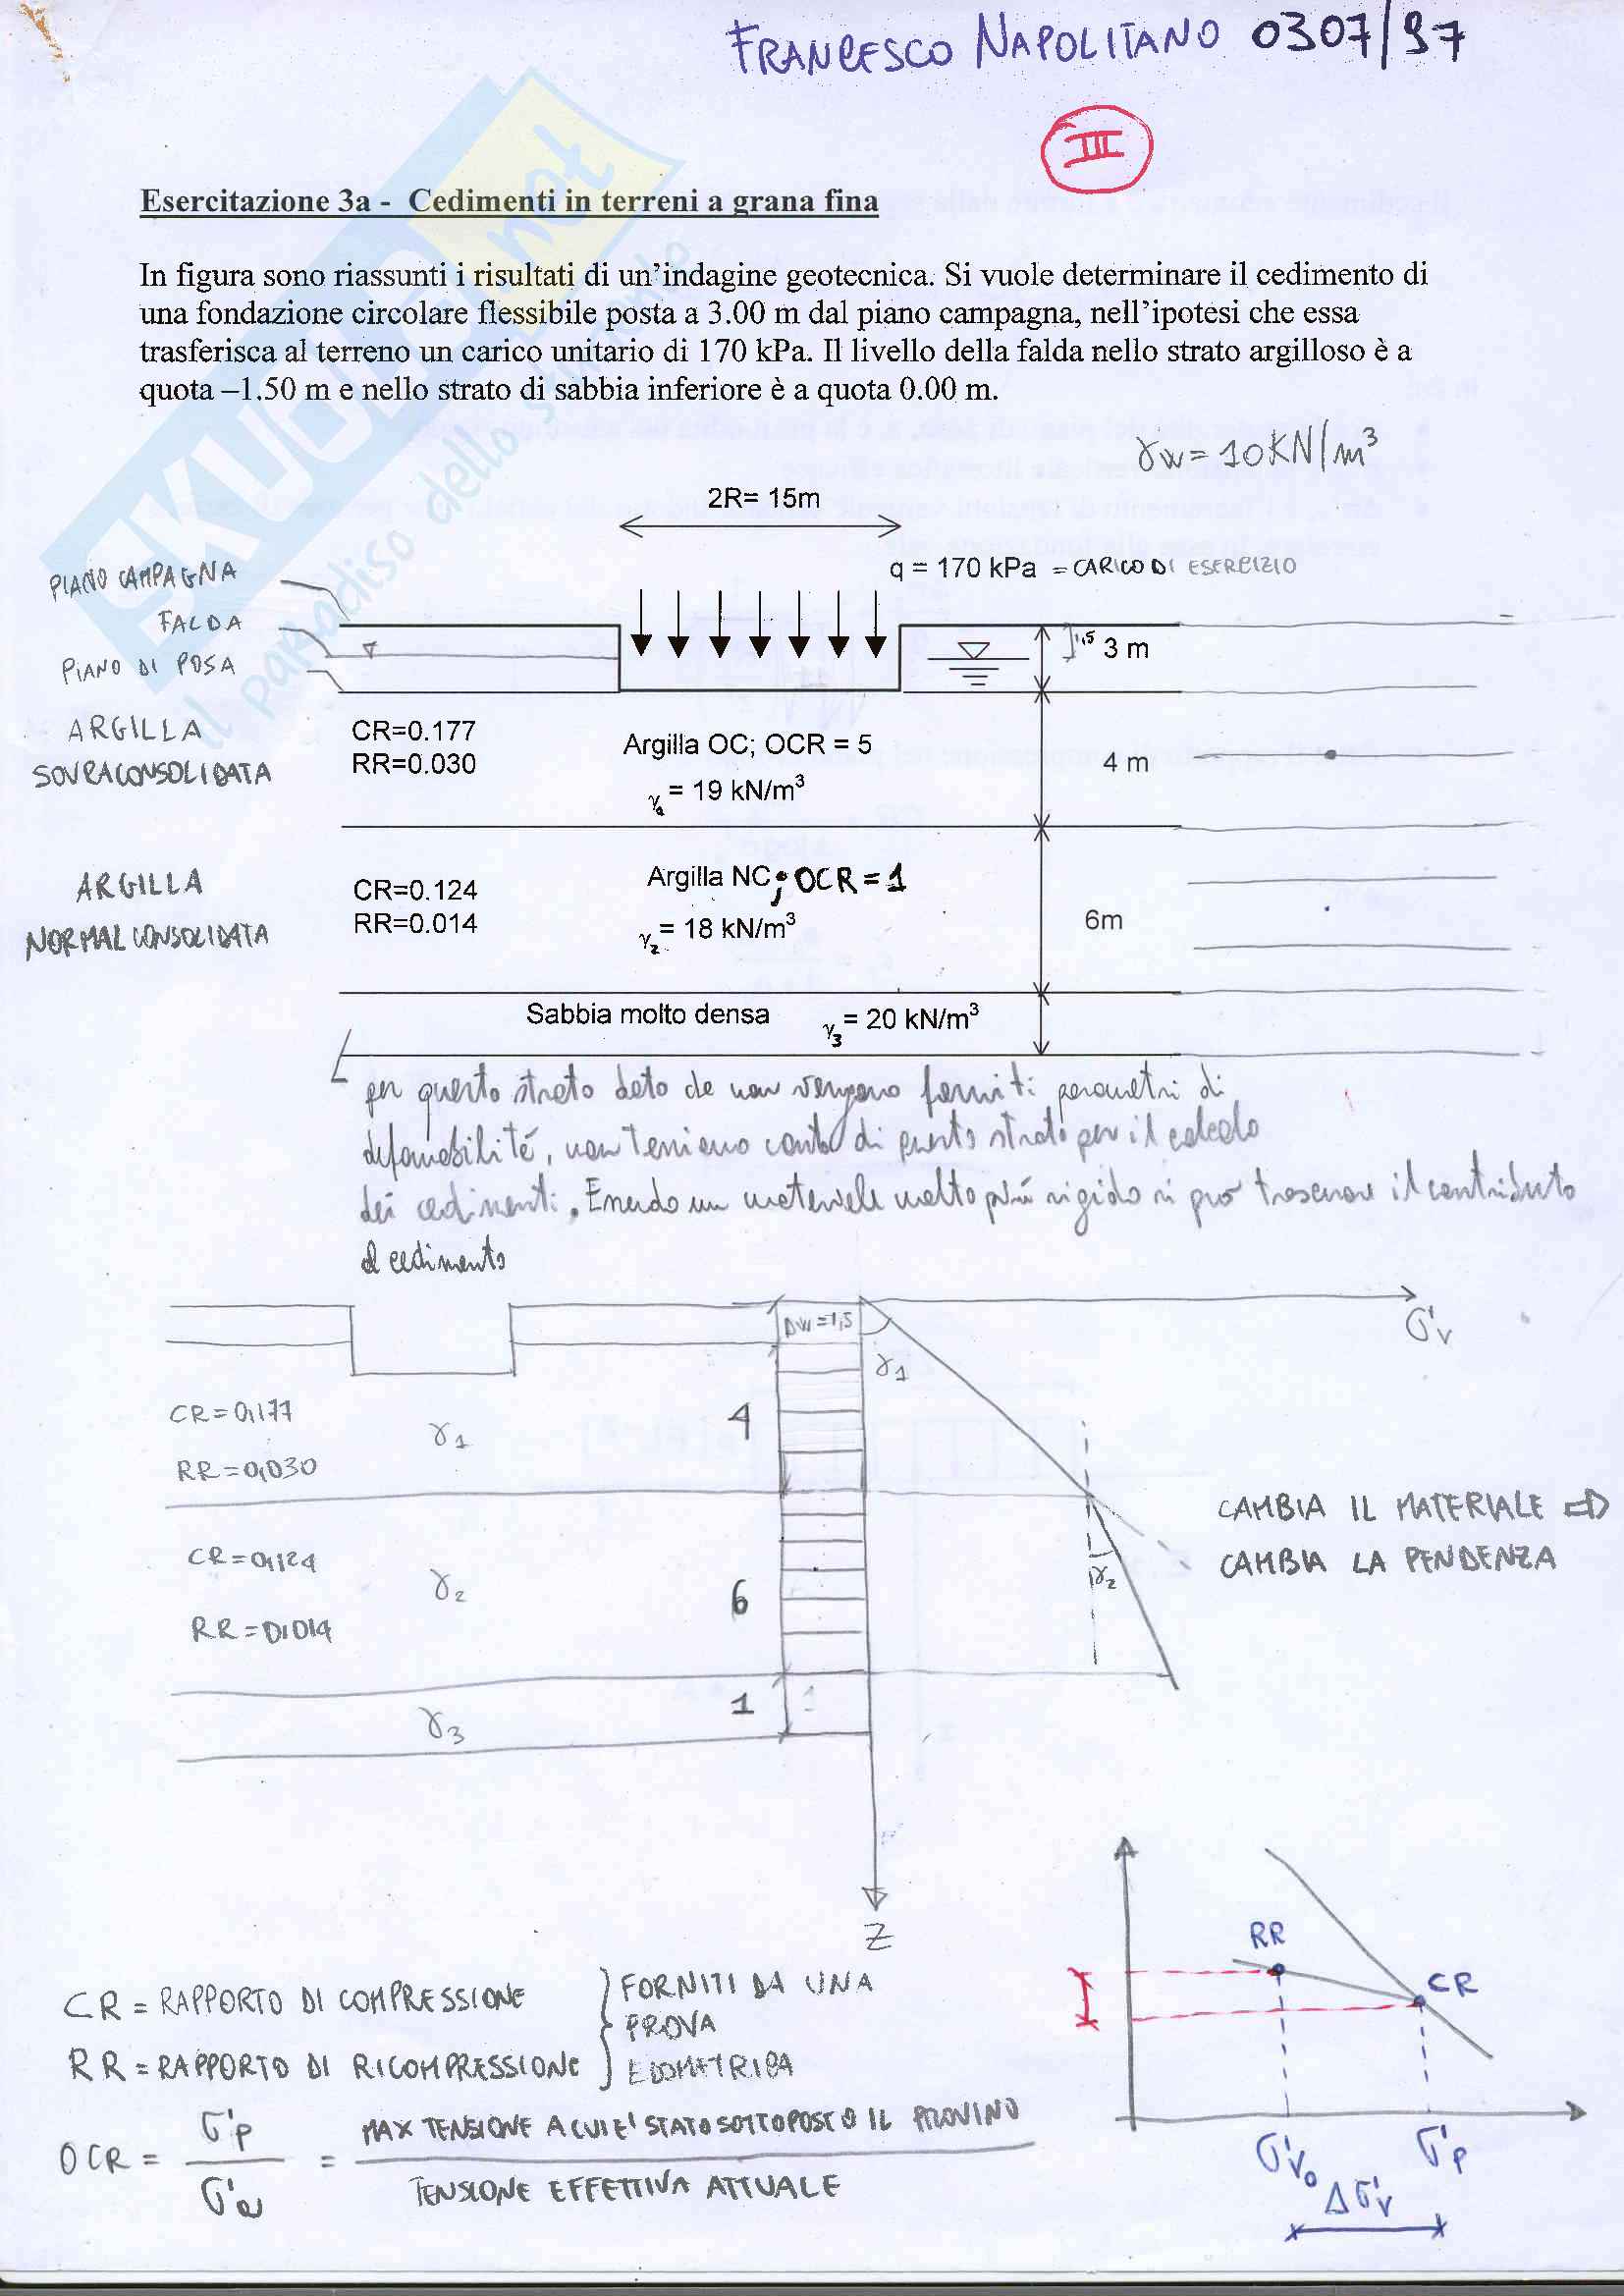 FRANCESCO NAPOLITANO 0307/97
III
Esercitazione 3a - Cedimenti in terreni a grana fina
In figura sono riassunti i risultati di un'indagine geotecnica. Si vuole determinare il cedimento di
una fondazione circolare flessibile posta a 3.00 m dal piano campagna, nell'ipotesi che essa
trasferisca al terreno un carico unitario di 170 kPa. Il livello della falda nello strato argilloso è a
quota –1.50 m e nello strato di sabbia inferiore è a quota 0.00 m.
γw = 10KN/m³
2R= 15m
q = 170 kPa = CARICO DI ESERCIZIO
PIANO CAMPAGNA
FALDA
PIANO DI POSA
1,5 3 m
ARGILLA
SOVRACONSOLIDATA
CR=0.177
RR=0.030
Argilla OC; OCR = 5
γ₁ = 19 kN/m³
4 m
ARGILLA
NORMAL CONSOLIDATA
CR=0.124
RR=0.014
Argilla NC; OCR = 1
γ₂ = 18 kN/m³
6m
Sabbia molto densa γ₃ = 20 kN/m³
per questo strato dato che non vengono forniti parametri di
deformabilità, non teniamo conto di questo strato per il calcolo
dei cedimenti. Essendo un materiale molto più rigido si può trascurare il contributo
al cedimento
ΔW=1,5
σ'v
γ1
CR=0,177
RR=0,030
γ1
4
CAMBIA IL MATERIALE ⇒
CAMBIA LA PENDENZA
CR=0,124
RR=0,014
γ2
6
γ2
γ3
1
1
Z
RR
CR
σ'v₀
σ'p
Δσ'v
CR = RAPPORTO DI COMPRESSIONE
RR = RAPPORTO DI RICOMPRESSIONE
FORNITI DA UNA
PROVA
EDOMETRICA
OCR = σ'p / σ'a = MAX TENSIONE A CUI E' STATO SOTTOPOSTO IL PROVINO
TENSIONE EFFETTIVA ATTUALE
SKUOLA.not
il paradiso dello studente